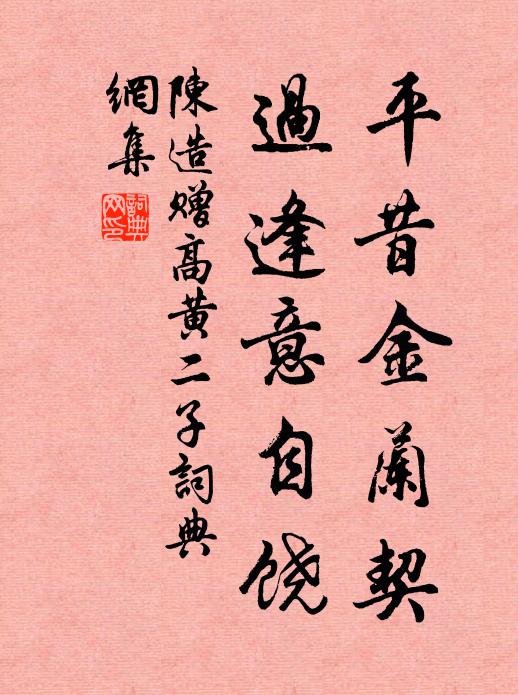 平昔金蘭契
過逢意自饶
陳造贈高黄二子詞典
網集
詞典
网印